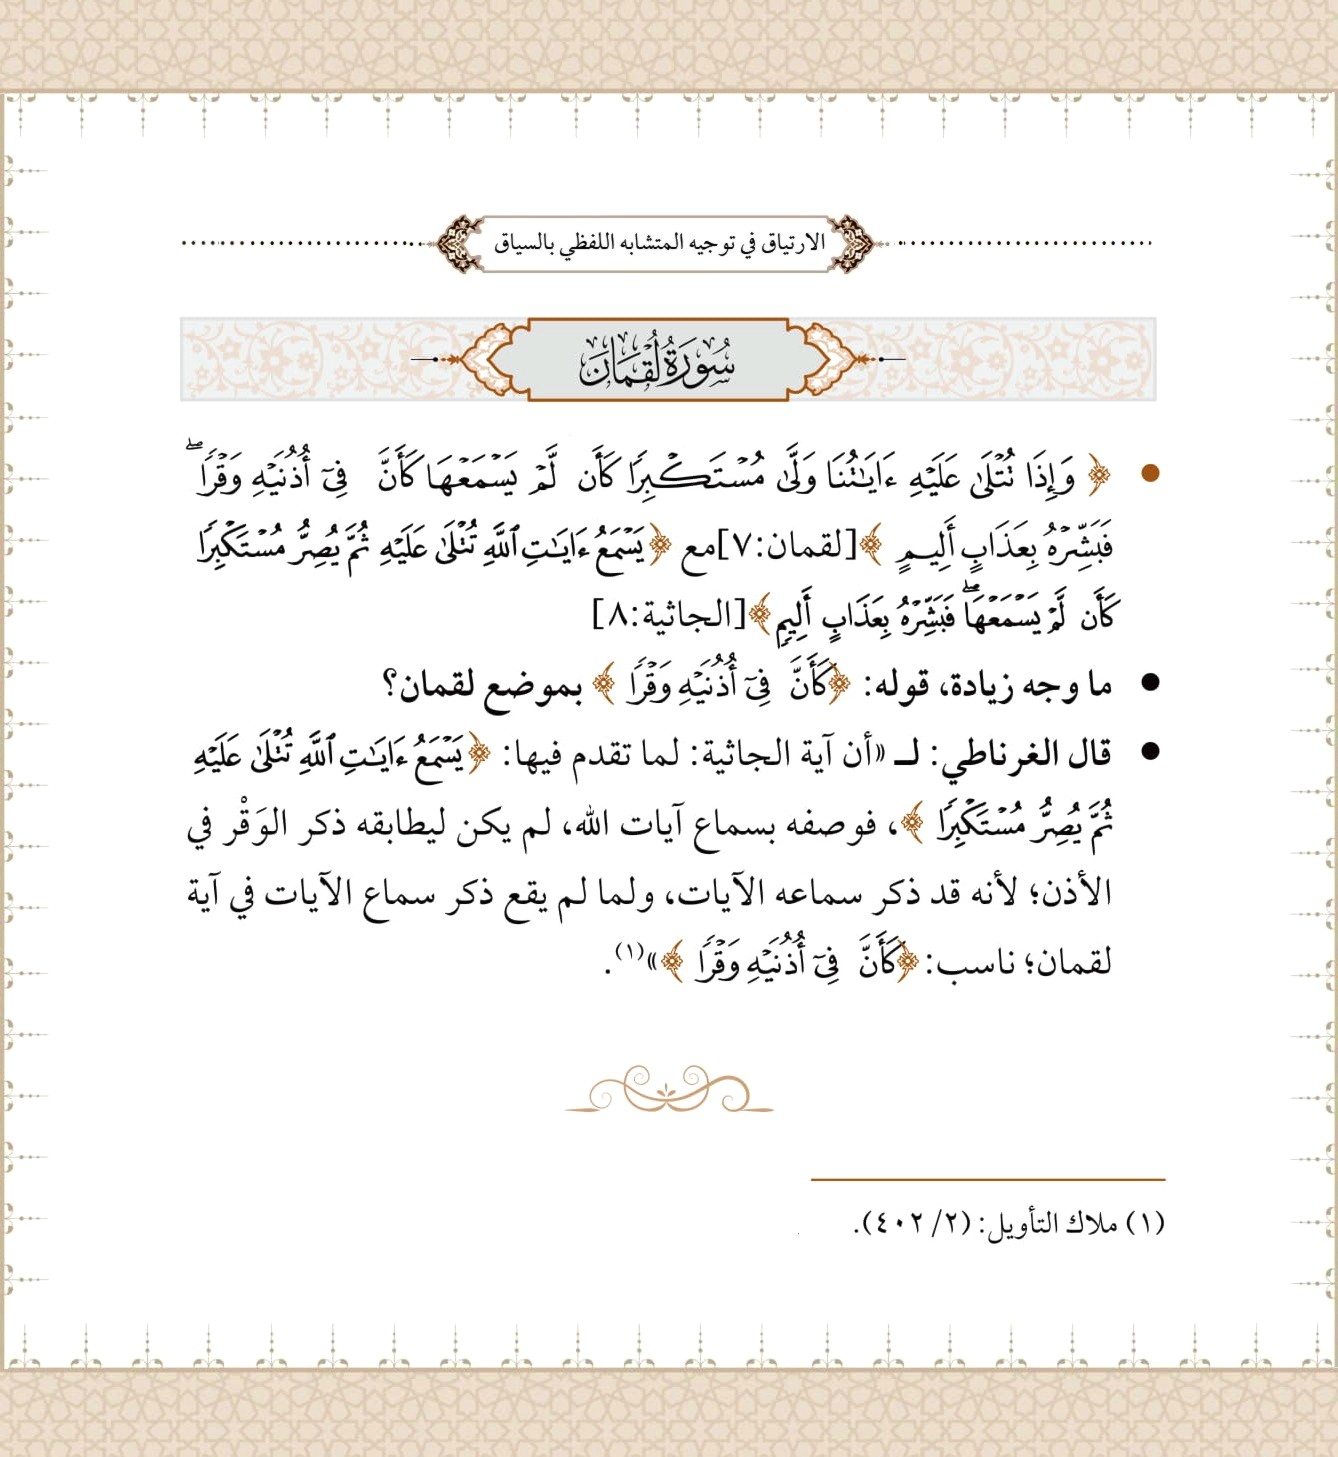 الارتياق في توجيه المتشابه اللفظي بالسياق
سُورَةُ لُقْمَان
• ﴿ وَإِذَا تُتْلَىٰ عَلَيْهِ ءَايَـٰتُنَا وَلَّىٰ مُسْتَكْبِرًا كَأَن لَّمْ يَسْمَعْهَا كَأَنَّ فِىٓ أُذُنَيْهِ وَقْرًا ۖ
فَبَشِّرْهُ بِعَذَابٍ أَلِيمٍ ﴾[لقمان:٧]مع ﴿يَسْمَعُ ءَايَـٰتِ ٱللَّهِ تُتْلَىٰ عَلَيْهِ ثُمَّ يُصِرُّ مُسْتَكْبِرًا
كَأَن لَّمْ يَسْمَعْهَا ۖ فَبَشِّرْهُ بِعَذَابٍ أَلِيمٍ﴾[الجاثية:٨]
• ما وجه زيادة، قوله: ﴿كَأَنَّ فِىٓ أُذُنَيْهِ وَقْرًا ﴾ بموضع لقمان؟
• قال الغرناطي: لـ «أن آية الجاثية: لما تقدم فيها: ﴿يَسْمَعُ ءَايَـٰتِ ٱللَّهِ تُتْلَىٰ عَلَيْهِ
ثُمَّ يُصِرُّ مُسْتَكْبِرًا ﴾، فوصفه بسماع آيات الله، لم يكن ليطابقه ذكر الوَقْر في
الأذن؛ لأنه قد ذكر سماعه الآيات، ولما لم يقع ذكر سماع الآيات في آية
لقمان؛ ناسب: ﴿كَأَنَّ فِىٓ أُذُنَيْهِ وَقْرًا ﴾»(١).
(١) ملاك التأويل: (٢/ ٤٠٢).